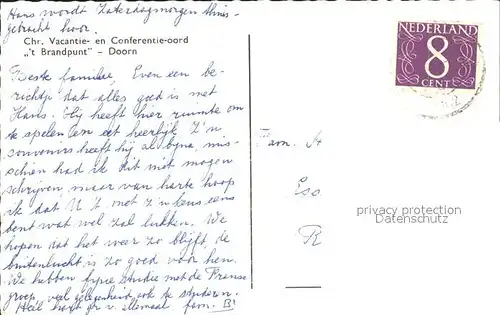 Hans wordt Zaterdagmorgen thuis-
gebracht hoor.
Chr. Vacantie- en Conferentie-oord
„'t Brandpunt" – Doorn
Beste familie, Even een be-
richtje dat alles goed is met
Hans. Hij heeft hier ruimte om
te spelen en eet heerlijk. Z'n
souvenirs heeft hij al bijna, mis-
schien had ik dit niet mogen
schrijven, maar van harte hoop
ik dat U Z. met z'n
bent wat wel zal lukken. We
hopen dat het weer zo blijft, de
buitenlucht is zo goed voor hen.
We hebben fijne studie met de Franse
groep, veel gelegenheid ook te studeren.
Heel v. allemaal fam. B!
NEDERLAND
8
CENT
Fam. A
Ess
R
privacy protection
Datenschutz.